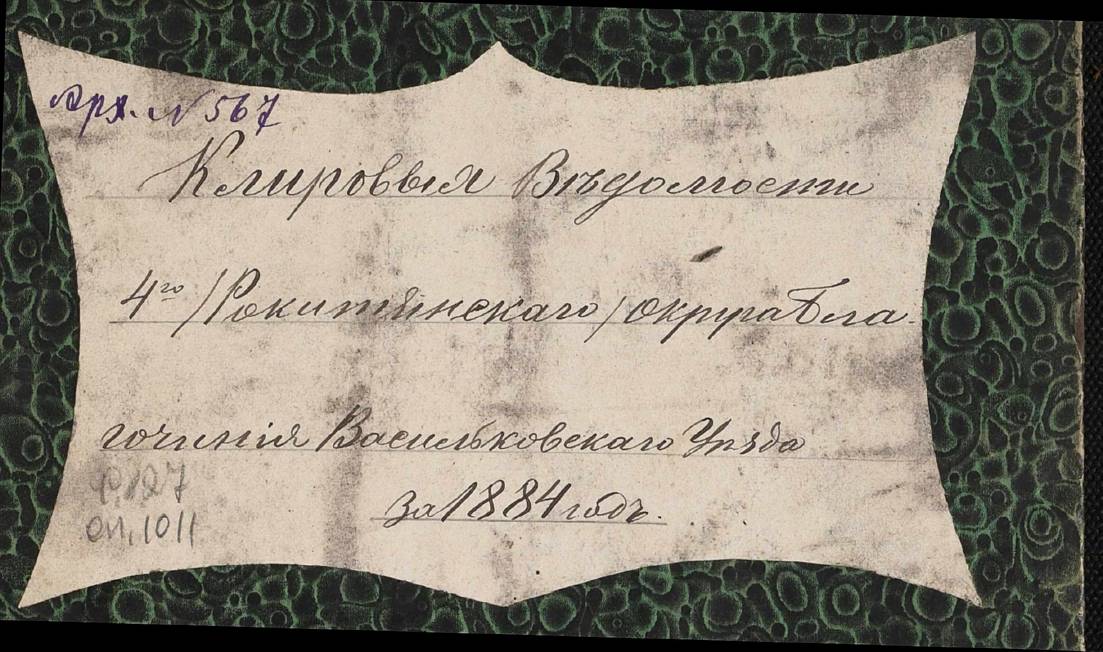 Арх. № 567
Клировыя Вѣдомости
4го /Рокитянскаго/ округа Бла-
гочинія Васильковскаго Уѣзда
за 1884 годъ.
Ф. 127
оп. 1011